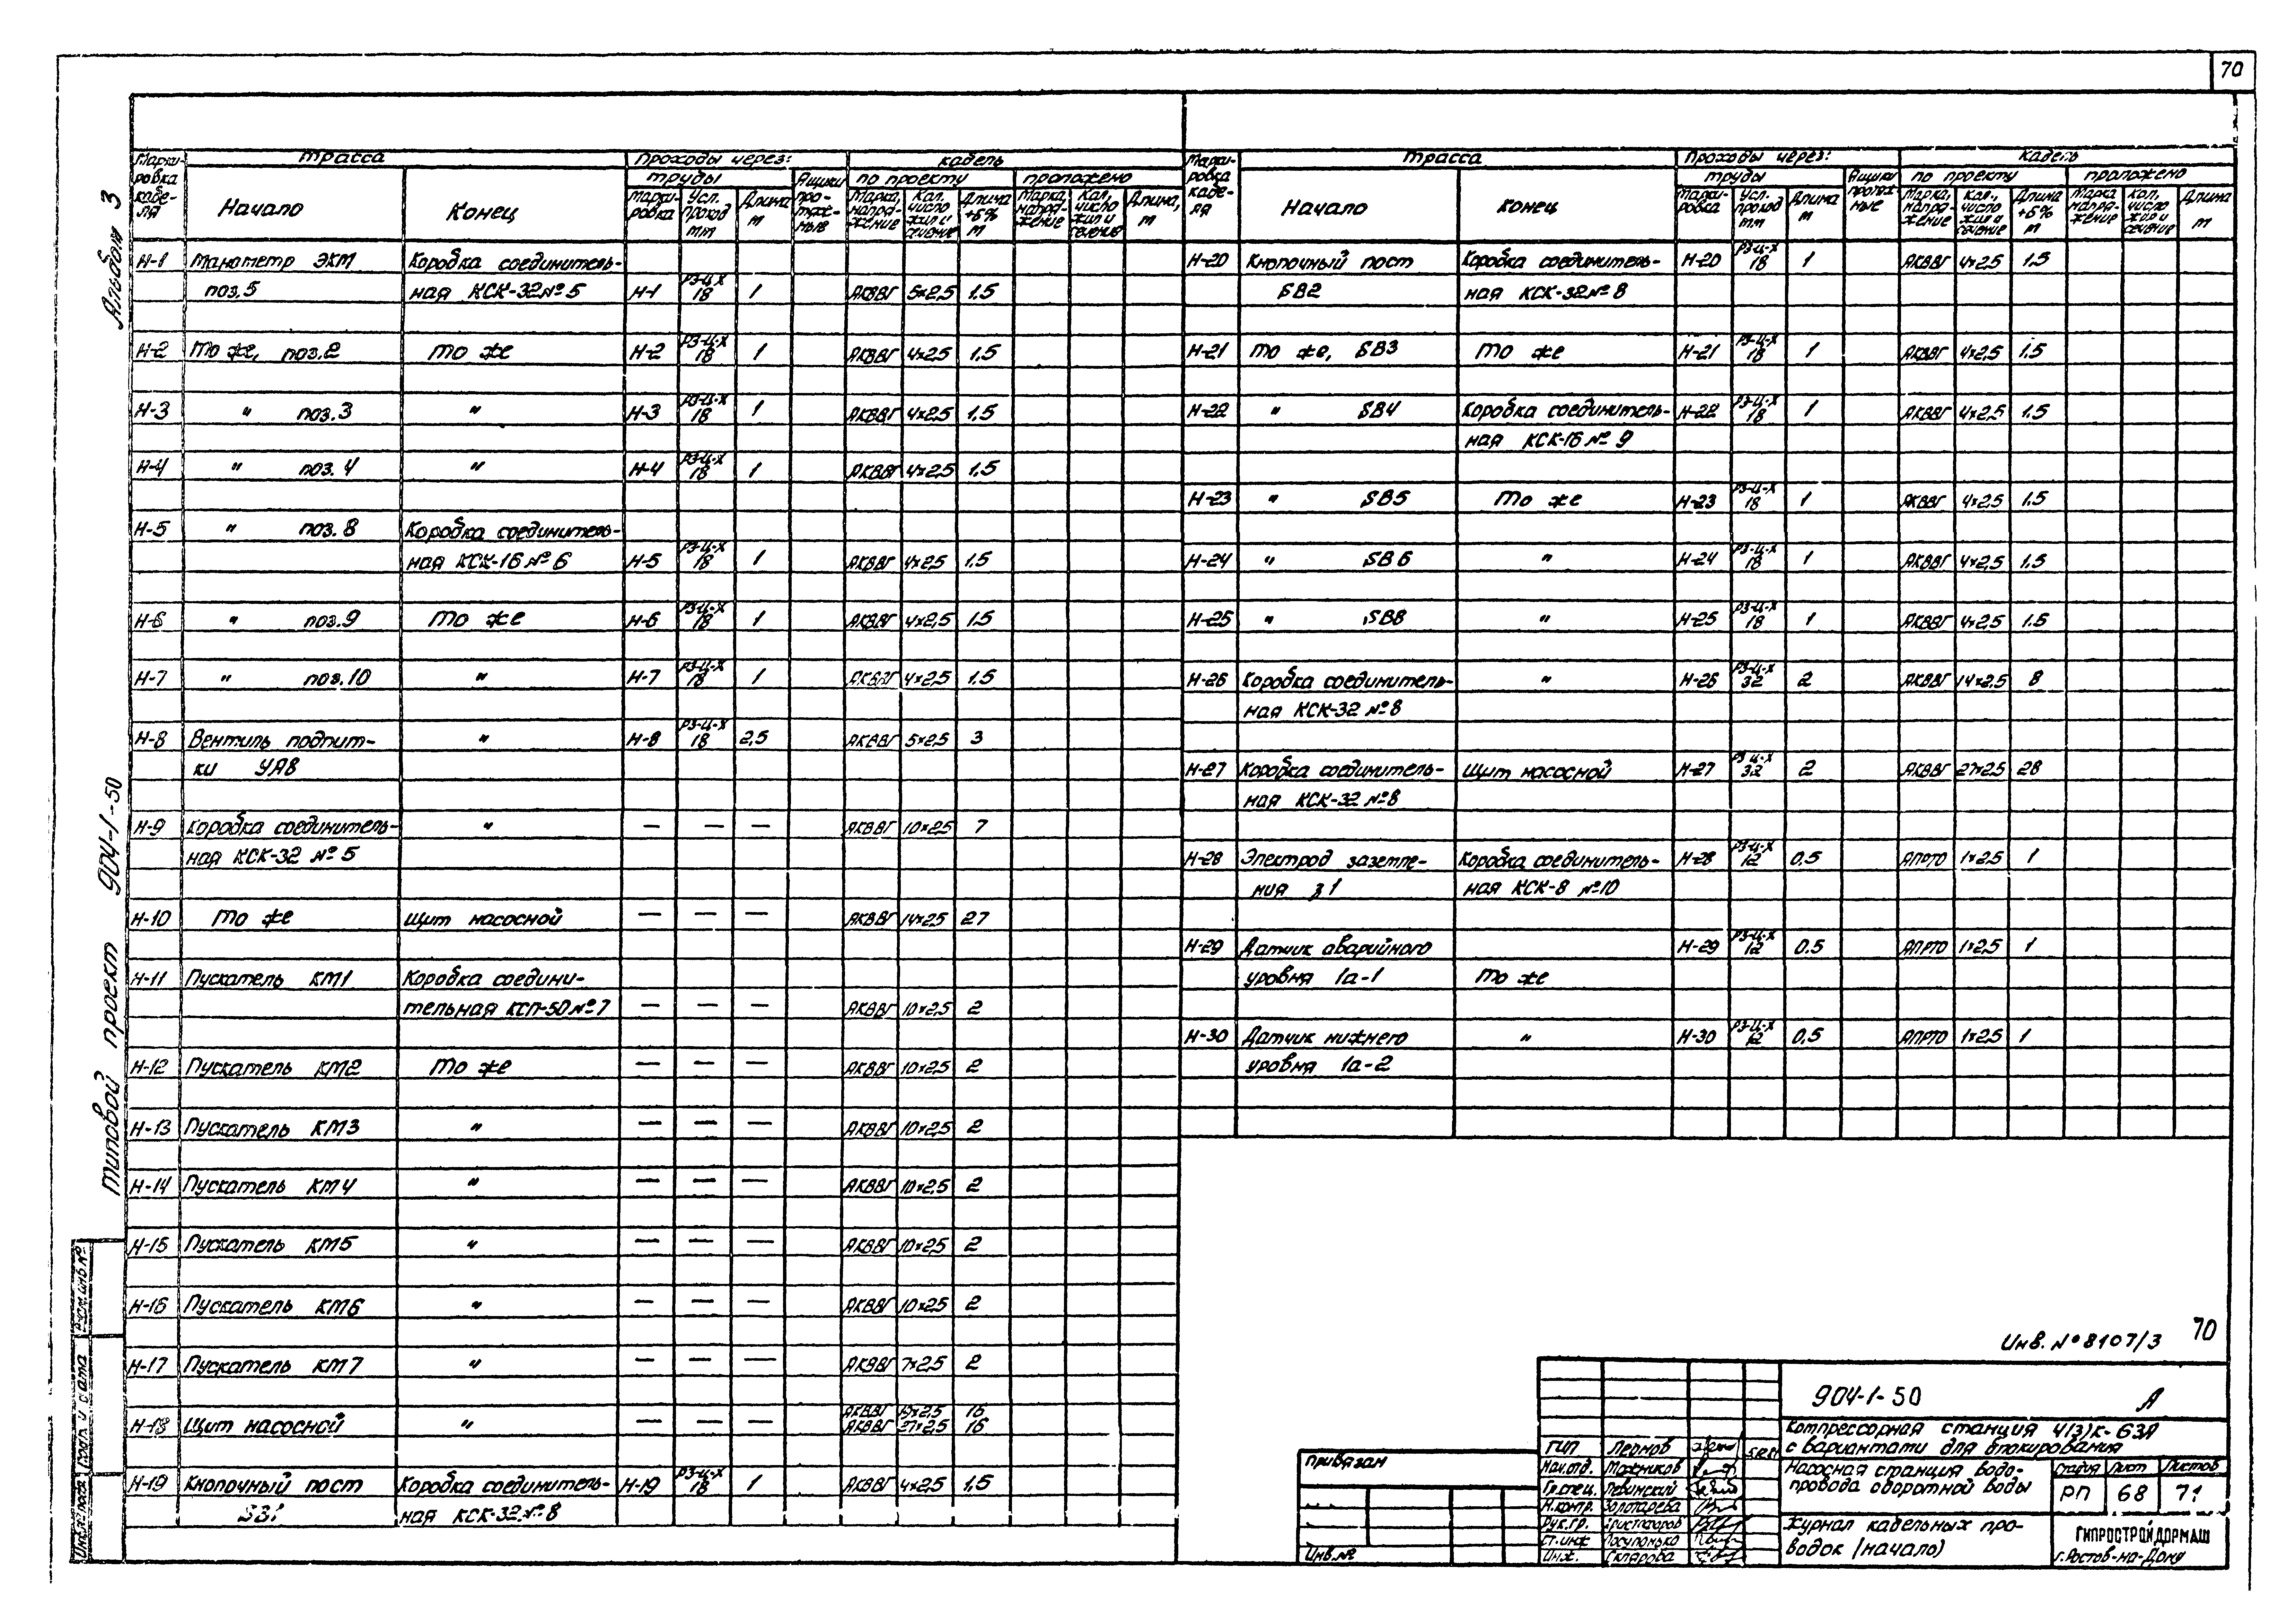 70
Альбом 3
Типовой проект 904-1-50
Марки-ровка кабе-ля | Трасса | Проходы через: | Кабель
трубы | Ящики про-тяж-ные | по проекту | проложено
Начало | Конец | Марки-ровка | Усл. проход мм | Длина м | Марка, напря-жение | Кол., число жил и сечение | Длина +6% м | Марка, напря-жение | Кол., число жил и сечение | Длина, м
Н-1 Манометр ЭКМ Коробка соединитель-
поз.5 ная КСК-32№5 Н-1 РЗ-Ц-Х 18 1 АКВВГ 5×2,5 1.5
Н-2 То же, поз.2 То же Н-2 РЗ-Ц-Х 18 1 АКВВГ 4×2,5 1.5
Н-3 " поз.3 " Н-3 РЗ-Ц-Х 18 1 АКВВГ 4×2,5 1.5
Н-4 " поз.4 " Н-4 РЗ-Ц-Х 18 1 АКВВГ 4×2,5 1.5
Н-5 " поз.8 Коробка соединитель-
ная КСК-16№6 Н-5 РЗ-Ц-Х 18 1 АКВВГ 4×2,5 1.5
Н-6 " поз.9 То же Н-6 РЗ-Ц-Х 18 1 АКВВГ 4×2,5 1.5
Н-7 " поз.10 " Н-7 РЗ-Ц-Х 18 1 АКВВГ 4×2,5 1.5
Н-8 Вентиль подпит- " Н-8 РЗ-Ц-Х 18 2,5 АКВВГ 5×2,5 3
ки УА8
Н-9 Коробка соединитель- " — — — АКВВГ 10×2,5 7
ная КСК-32 №5
Н-10 То же Щит насосной — — — АКВВГ 14×2,5 27
Н-11 Пускатель КМ1 Коробка соедини-
тельная КСП-50№7 — — — АКВВГ 10×2,5 2
Н-12 Пускатель КМ2 То же — — — АКВВГ 10×2,5 2
Н-13 Пускатель КМ3 " — — — АКВВГ 10×2,5 2
Н-14 Пускатель КМ4 " — — — АКВВГ 10×2,5 2
Н-15 Пускатель КМ5 " — — — АКВВГ 10×2,5 2
Н-16 Пускатель КМ6 " — — — АКВВГ 10×2,5 2
Н-17 Пускатель КМ7 " — — — АКВВГ 7×2,5 2
Н-18 Щит насосной " — — — АКВВГ 19×2,5 16
АКВВГ 27×2,5 16
Н-19 Кнопочный пост Коробка соединитель- Н-19 РЗ-Ц-Х 18 1 АКВВГ 4×2,5 1,5
SB1 ная КСК-32№8
Марки-ровка кабе-ля | Трасса | Проходы через: | Кабель
трубы | Ящики протяж-ные | по проекту | проложено
Начало | Конец | Марки-ровка | Усл. проход мм | Длина м | Марка, напря-жение | Кол., число жил и сечение | Длина +6% м | Марка напря-жение | Кол. число жил и сечение | Длина м
Н-20 Кнопочный пост Коробка соединитель- Н-20 РЗ-Ц-Х 18 1 АКВВГ 4×2,5 1.5
SB2 ная КСК-32№8
Н-21 То же, SB3 То же Н-21 РЗ-Ц-Х 18 1 АКВВГ 4×2,5 1.5
Н-22 " SB4 Коробка соединитель- Н-22 РЗ-Ц-Х 18 1 АКВВГ 4×2,5 1.5
ная КСК-16№9
Н-23 " SB5 То же Н-23 РЗ-Ц-Х 18 1 АКВВГ 4×2,5 1.5
Н-24 " SB6 " Н-24 РЗ-Ц-Х 18 1 АКВВГ 4×2,5 1.5
Н-25 " SB8 " Н-25 РЗ-Ц-Х 18 1 АКВВГ 4×2,5 1.5
Н-26 Коробка соединитель- " Н-26 РЗ-Ц-Х 32 2 АКВВГ 14×2,5 8
ная КСК-32 №8
Н-27 Коробка соединитель- Щит насосной Н-27 РЗ-Ц-Х 32 2 АКВВГ 27×2,5 28
ная КСК-32 №8
Н-28 Электрод заземле- Коробка соединитель- Н-28 РЗ-Ц-Х 12 0.5 АПРТО 1×2,5 1
ния з1 ная КСК-8 №10
Н-29 Датчик аварийного Н-29 РЗ-Ц-Х 12 0.5 АПРТО 1×2,5 1
уровня 1а-1 То же
Н-30 Датчик нижнего " Н-30 РЗ-Ц-Х 12 0,5 АПРТО 1×2,5 1
уровня 1а-2
Инв. №8107/3 70
904-1-50 А
Компрессорная станция 4(3)К-63А
с вариантами для блокирования
Насосная станция водо-
провода оборотной воды
Стадия Лист Листов
РП 68 71
Журнал кабельных про-
водок (начало)
ГИПРОСТРОЙДОРМАШ
г.Ростов-на-Дону
ГИП Леонов
Нач.отд. Можников
Гр.спец. Левинский
Н.контр. Золотарева
Рук.гр.
Ст.инж
Инж. Склярова
Привязан
Инв.№
Взам.инв.№
Подп. и дата
Инв.№ подл.